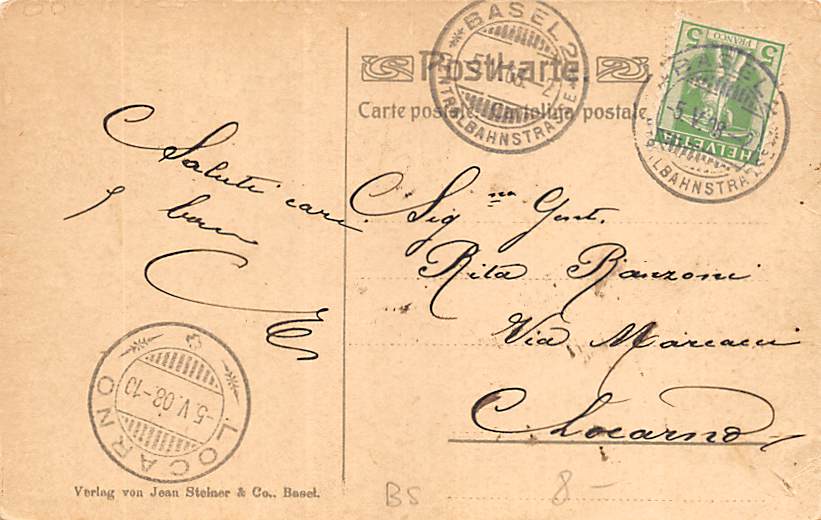 Postkarte.
Carte postale. Cartolina postale
BASEL 2
-5.V.08.-2
ZENTRALBAHNSTRASSE
5
FRANCO
HELVETIA
BASEL 2
-5.V.08.-2
ZENTRALBAHNSTRASSE
Saluti cari
Sig.na Gent.
Rita Ranzoni
Via Marcacci
Locarno
LOCARNO
-5.V.08-10
Verlag von Jean Steiner & Co., Basel.
BS
8-